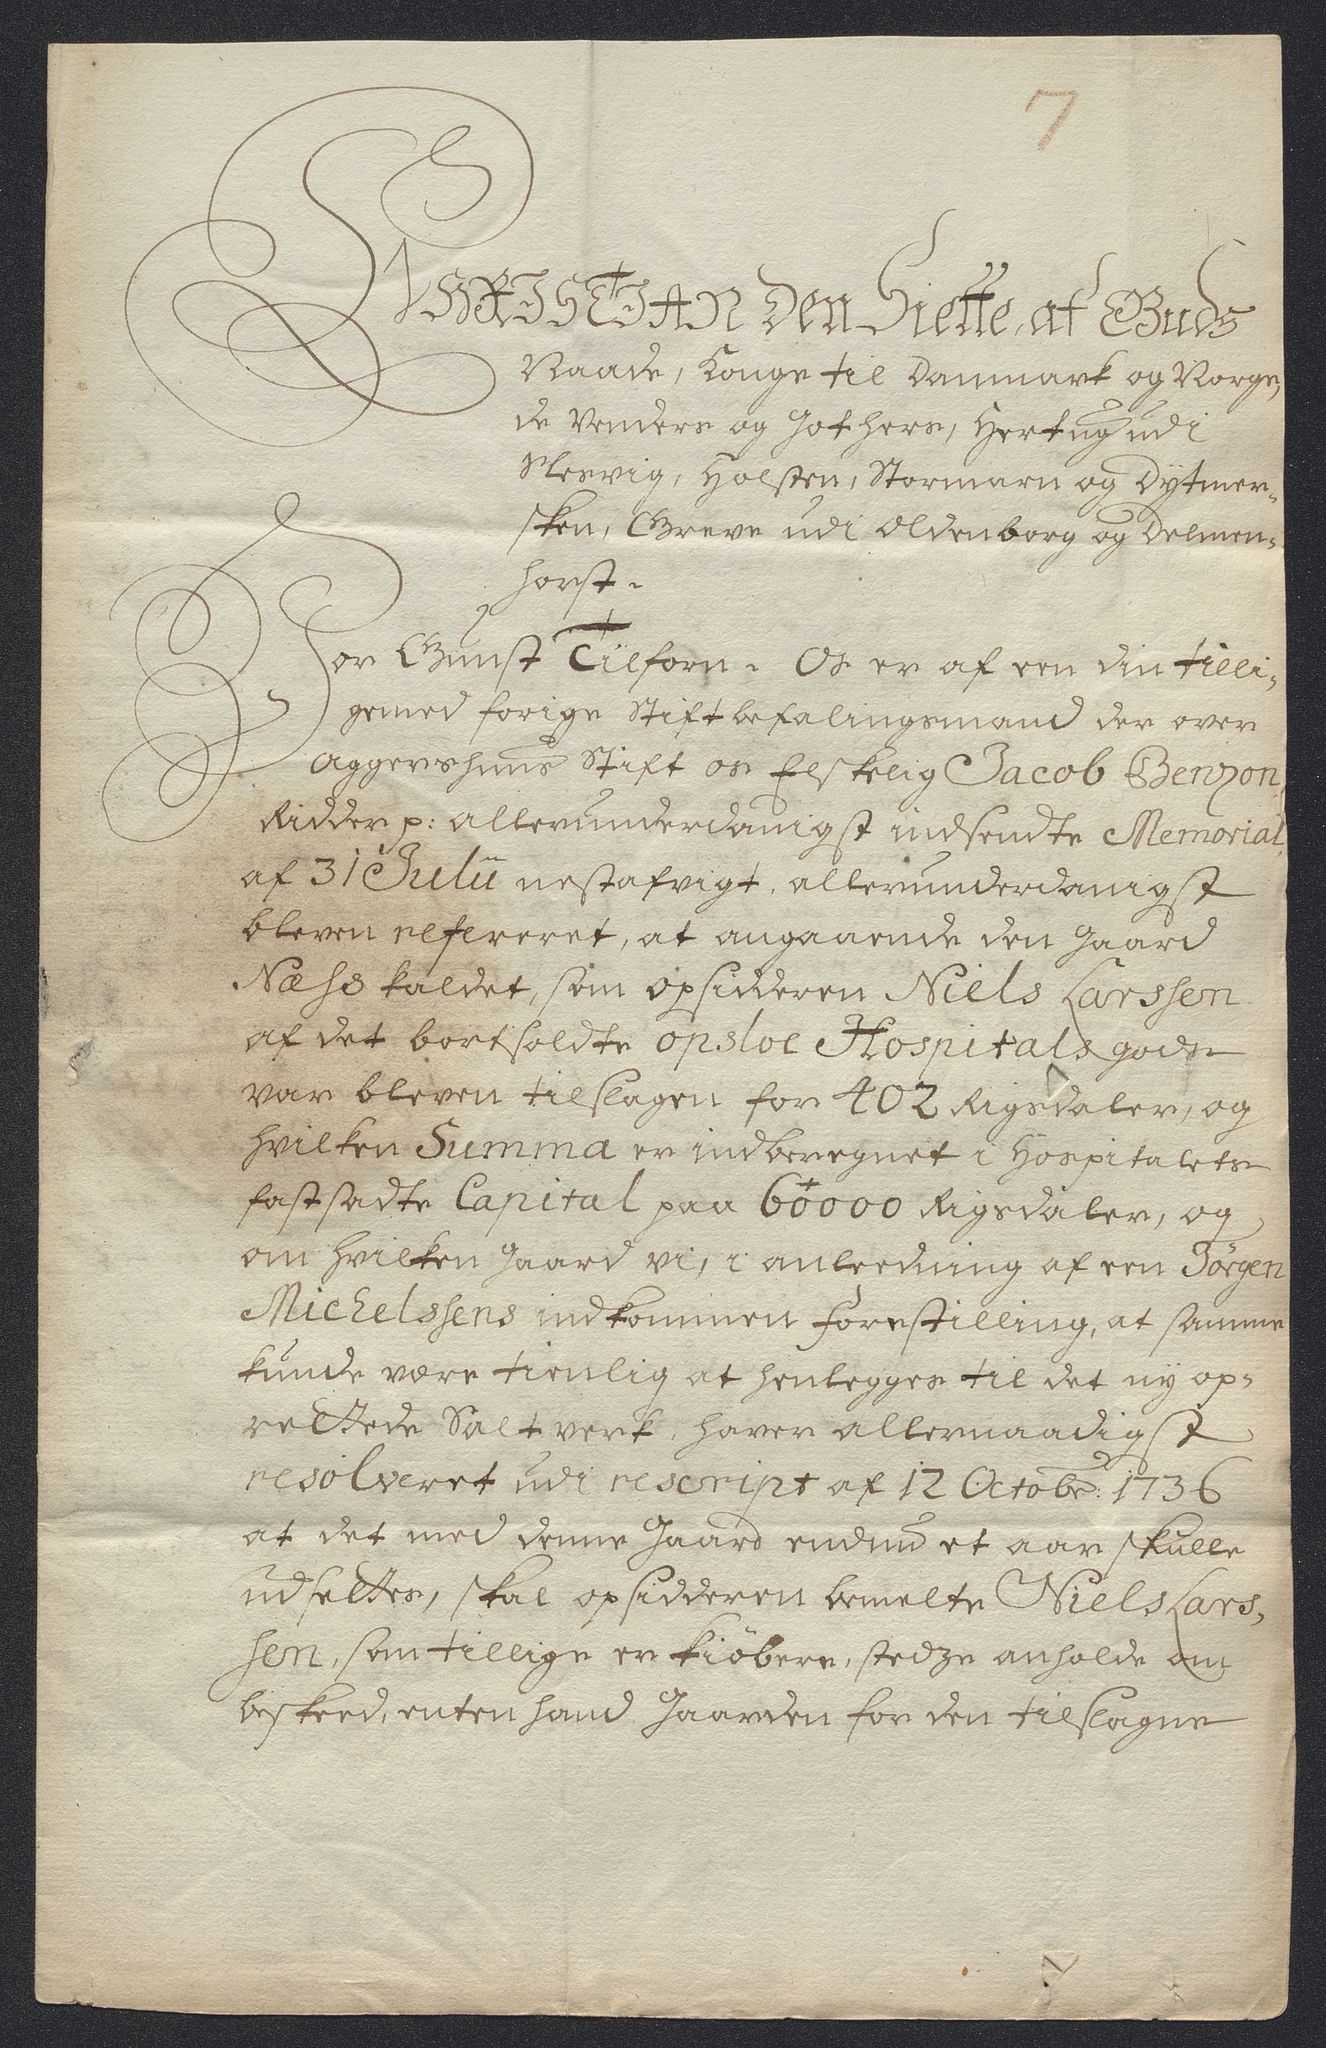 7
CHRISTIAN Den Siette, af Guds
Naade, Konge til Danmark og Norge,
de Venders og Gothers, Hertug udi
Slesvig, Holsten, Stormarn og Dytmer-
sken, Greve udi Oldenborg og Delmen-
horst.
Vor Gunst Tilforn. Os er af een din tilli-
gemed forige Stiftbefalingsmand der over
Aggershuus Stift os Elskelig Jacob Benzon
Ridder p: allerunderdanigst indsendte Memorial
af 31 Julii nestafvigt, allerunderdanigst
bleven refereret, at angaaende den Gaard
Næhs kaldet, som opsidderen Niels Larssen
af det bortsoldte opsloe Hospitals gods
var bleven tilslagen for 402 Rigsdaler, og
hvilken Summa er indberegnet i Hospitalets
fastsadte Capital paa 60000 Rigsdaler, og
om hvilken Gaard vi, i anleedning af een Jørgen
Michelssens indkommen forestilling, at samme
kunde være tienlig at henlegges til det ny op-
rettede Saltverk, haver allernaadigst
resolveret udi rescript af 12 Octobr: 1736
at det med denne Gaard endnu et aar skulle
udsettes, skal opsidderen bemelte Niels Lars-
sen, som tillige er kiøbere, stedze anholde om
beskeed, enten hand Gaarden for den tilslagne